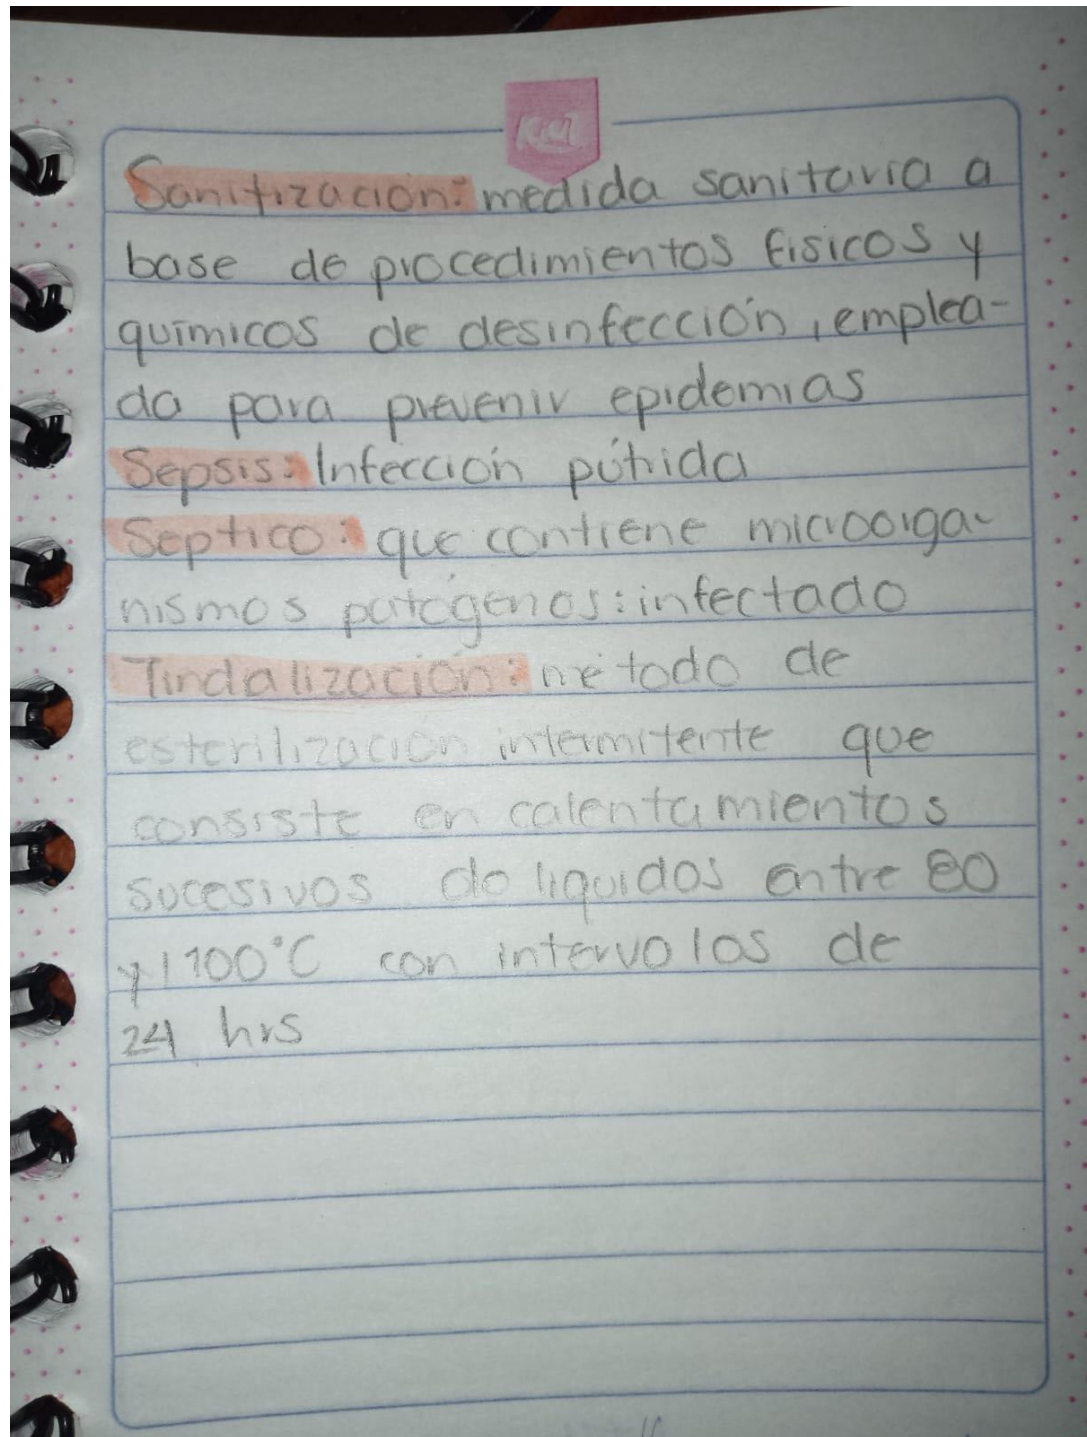 Kiut
Sanitización: medida sanitaria a
base de procedimientos fisicos y
químicos de desinfección, emplea-
da para prevenir epidemias
Sepsis: Infección pútrida
Septico: que contiene microorga-
nismos patógenos: infectado
Tindalización: método de
esterilización intermitente que
consiste en calentamientos
sucesivos de liquidos entre 80
y 100°C con intervalos de
24 hrs